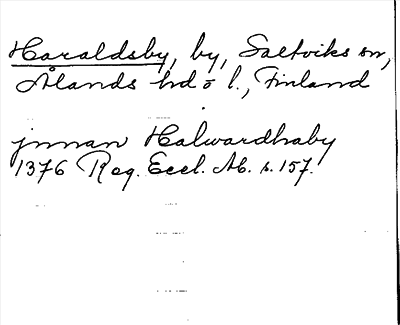 Haraldsby, by, Saltviks sn,
Ålands hd o l., Finland
jnnan Halwardhaby
1376 Reg. Eccl. Ab. s. 157.